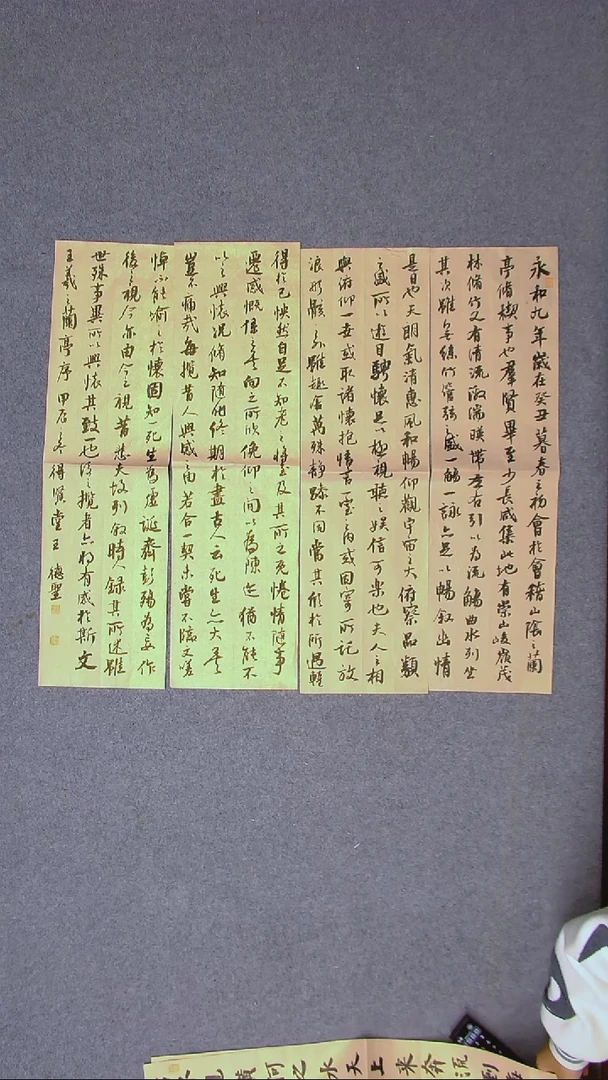 永和九年歲在癸丑暮春之初會於會稽山陰之蘭
亭脩禊事也羣賢畢至少長咸集此地有崇山峻嶺茂
林脩竹又有清流激湍暎帶左右引以為流觴曲水列坐
其次雖無絲竹管弦之盛觴一詠亦足以暢敘幽情
是日也天朗氣清惠風和暢仰觀宇宙之大俯察品類
之盛所以遊目騁懷足以極視聽之娛信可樂也夫人之相
與俯仰一世或取諸懷抱悟言一室之內或因寄所託放
浪形骸之外雖趣舍萬殊靜躁不同當其欣於所遇輒
得於己怏然自足不知老之將至及其所之既惓情隨事
遷感慨係之矣向之所欣俛仰之間以為陳迹猶不能不
以之興懷況脩短隨化終期於盡古人云死生亦大矣
豈不痛哉每攬昔人興感之由若合一契未嘗不臨文嗟
悼不能喻之於懷固知一死生為虛誕齊彭殤為妄作
後之視今亦由今之視昔悲夫故列敘時人錄其所述雖
世殊事異所以興懷其致一也後之攬者亦將有感於斯文
王羲之蘭亭序 甲辰之冬 得賢堂王德聖
見黃河之水天上來奔流到